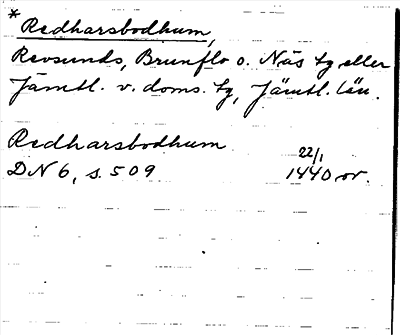 * Redharsbodhum,
Revsunds, Brunflo o. Näs tg eller
Jämtl. v. doms. tg, Jämtl. län.
Redharsbodhum
22/1
DN 6, s. 509 1440 or.